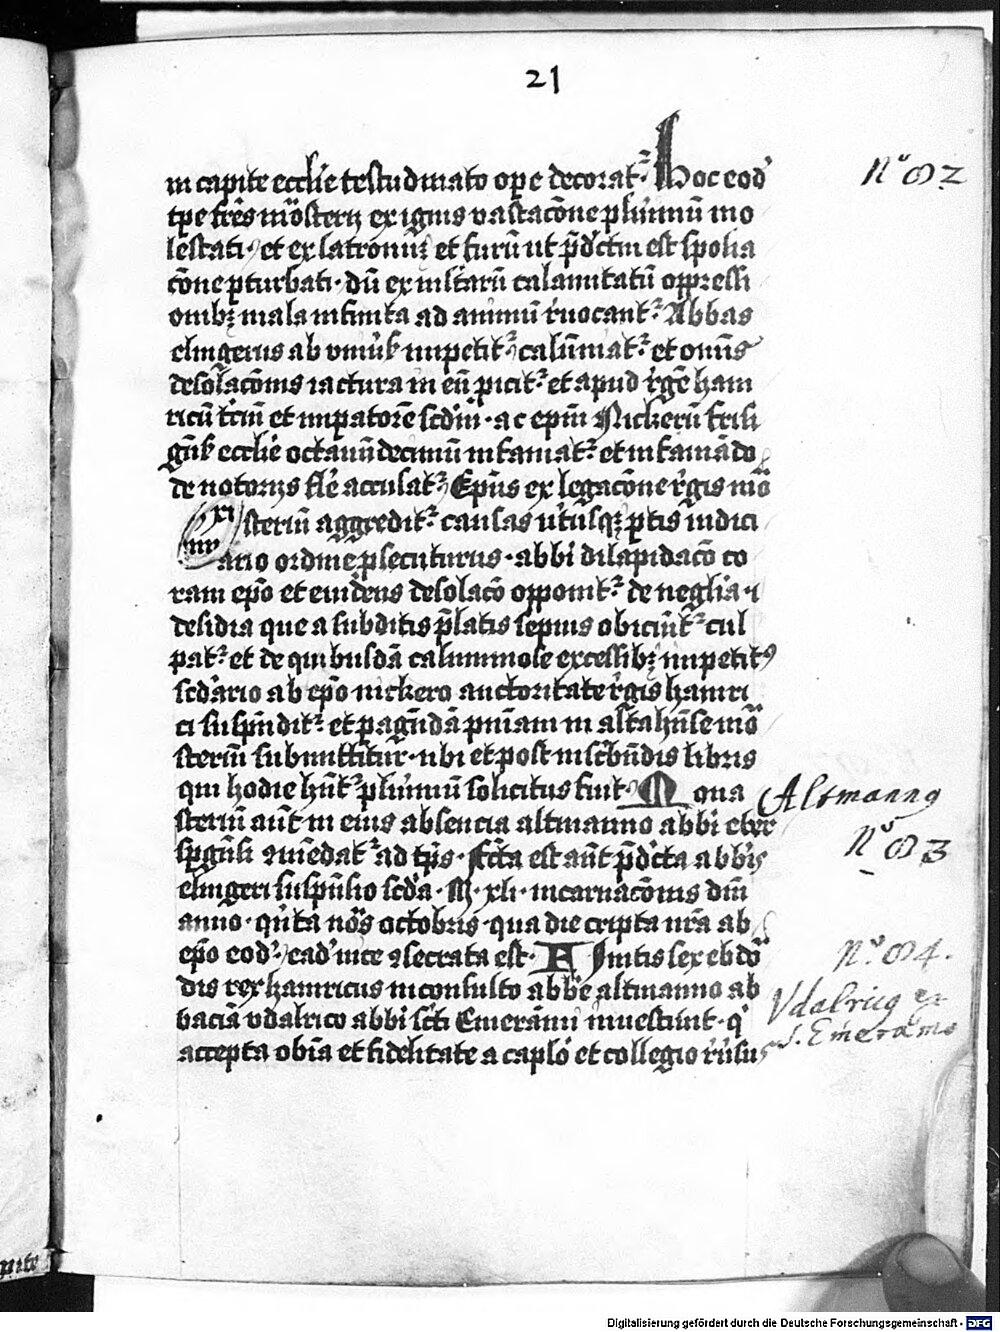 21
in capite eccl̄ie testudinato ope decorat᷑ Hoc eod᷑
tpe fr̄es mōsterij ex ignis vastacōne plurimū mo
lestati· et ex latronū et furū ut p̄dictm est spolia
cōne pturbati· dū ex instarū calamitatū oppressi
onibꝫ mala infinita ad animū reuocant᷑ Abbas
elingerus ab omibꝫ impetit᷑ calūniat᷑ et omīs
desolacōnis iactura in eū picit᷑ et apud rege hain
ricū tciū et impatorē scdm· ac epm Nickerū frisi
gn̄s eccl̄ie octauūdecimū infamiat᷑ et infamādo
de notorijs fl̄e accusat᷑ Ep̄us ex legacōne regis mō
steriū aggredit᷑ causas utriusqꝫ ptis iudici
ario ordine psecuturus· abbī dilapidacō co
ram epo et euidens desolacō opponit᷑ de neglīa·
desidia que a subditis p̄latis sepius obiciūt᷑ cul
pat᷑ et de quibusdā calumniose excessibꝫ impetitꝰ
scdario ab epo nickero auctoritate regis hainri
ci suspendit᷑ et pagendā pn̄iam in altahn̄se mō
steriū submittitur· ubi et post inscribēdis libris
qui hodie hn̄t᷑ plurimū solicitus fuit· Mona
steriū aūt in eius absencia altmanno abbī eber
spgnsi ꝯmēdat᷑ ad tp̄s· Fcta est aūt p̄dcta abbīs
elingeri suspensio scda· M· xli· incarnacōnis dn̄i
anno· qnta nōs octobris· qua die cripta nr̄a ab
epo eod᷑ ead᷑ uice ꝯsecrata est· Finitis sex ebdō
dis rex hainricus inconsulto abbē altmanno ab
baciā vdalrico abbī scī Emerāmi inuestiuit· q
accepta obīa et fidelitate a caplo et collegio rursus
xi
Nº 82
Altmannꝰ
Nº 83
Nº 84.
Vdalricꝰ ex
S. Emeramo
Digitalisierung gefördert durch die Deutsche Forschungsgemeinschaft - DFG